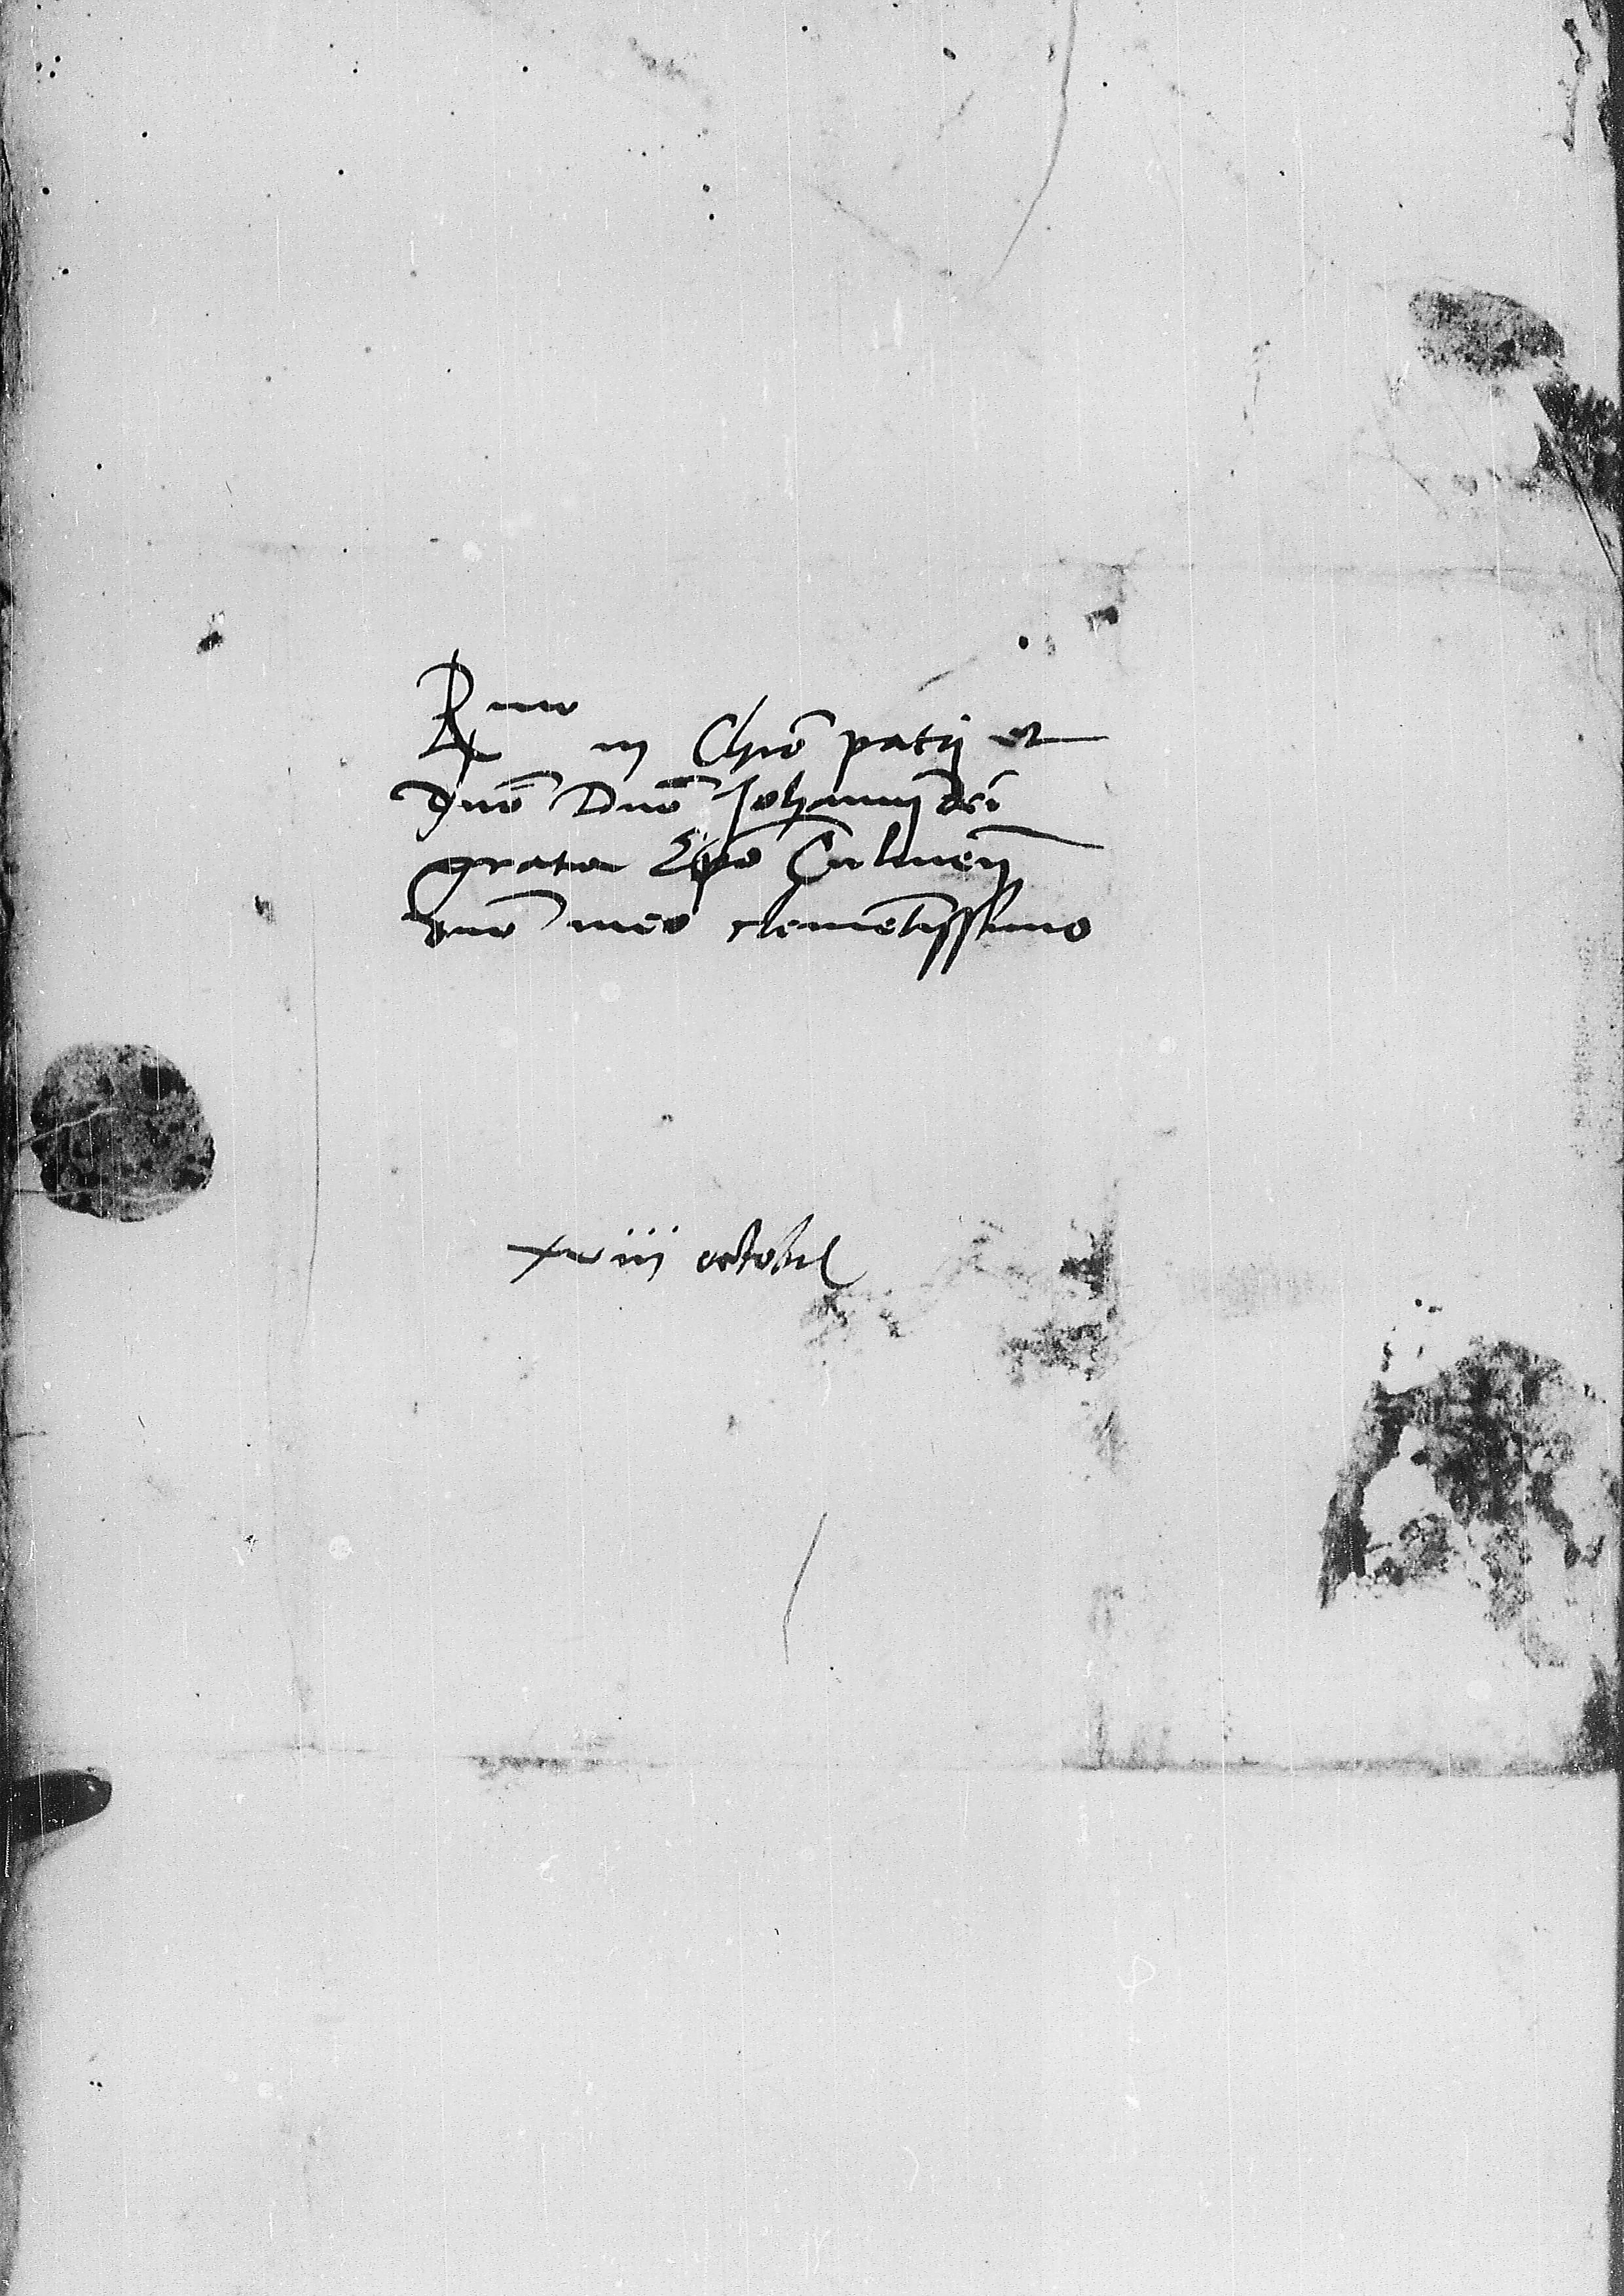 Rmo in Chro patri et
Dno Dno Johanni dei
gratia Epo Culmen
dno meo clemetissimo
xviii octobr